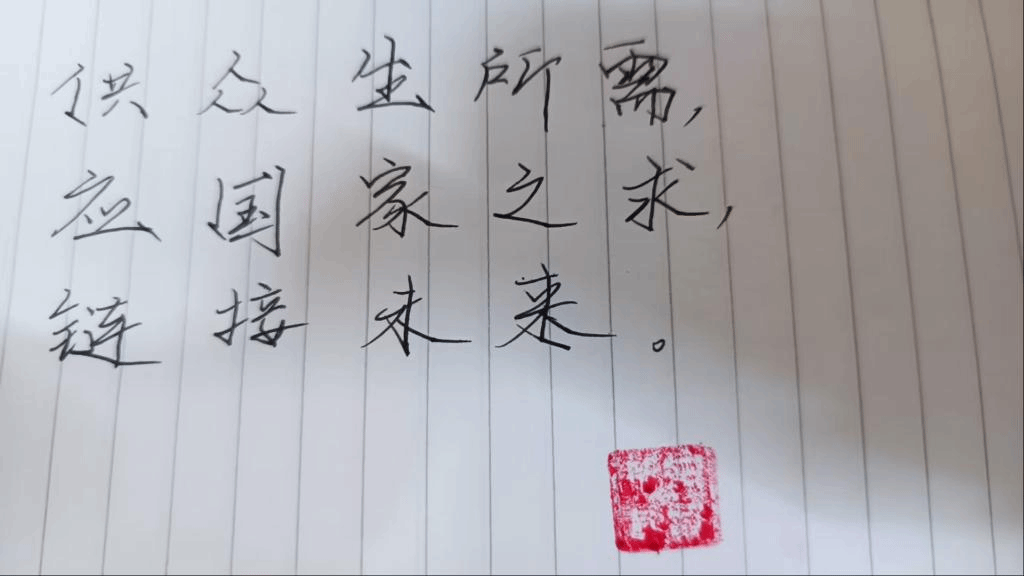 供众生所需,
应国家之求,
链接未来。